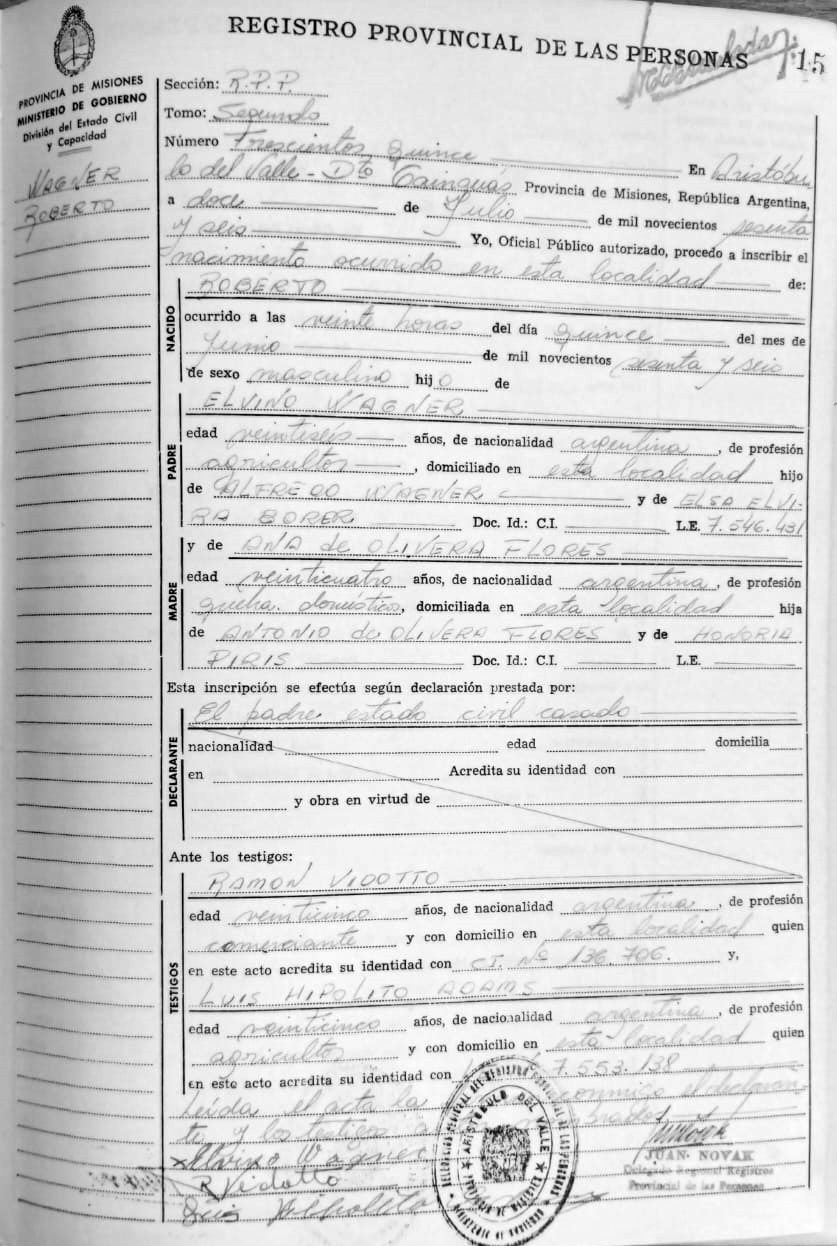 REGISTRO PROVINCIAL DE LAS PERSONAS
15
PROVINCIA DE MISIONES
MINISTERIO DE GOBIERNO
División del Estado Civil
y Capacidad
WAGNER
ROBERTO
Sección: R.P.P.
Tomo: Segundo
Número Trescientos quince En Aristóbu
lo del Valle - Dto Cainguás Provincia de Misiones, República Argentina,
a doce de Julio de mil novecientos sesenta
y seis Yo, Oficial Público autorizado, procedo a inscribir el
nacimiento ocurrido en esta localidad de:
NACIDO
ROBERTO
ocurrido a las veinte horas del día quince del mes de
Junio de mil novecientos sesenta y seis
de sexo masculino hijo de
PADRE
ELVINO WAGNER
edad veintiseis años, de nacionalidad argentina, de profesión
agricultor, domiciliado en esta localidad hijo
de ALFREDO WAGNER y de ELSA ELVI-
RA BORER Doc. Id.: C.I. L.E. 7.546.431
MADRE
y de ANA de OLIVERA FLORES
edad veinticuatro años, de nacionalidad argentina, de profesión
queha. domésticos, domiciliada en esta localidad hija
de ANTONIO de OLIVERA FLORES y de HONORIA
PIRIS Doc. Id.: C.I. L.E.
Esta inscripción se efectúa según declaración prestada por:
DECLARANTE
El padre estado civil casado
nacionalidad edad domicilia
en Acredita su identidad con
y obra en virtud de
Ante los testigos:
TESTIGOS
RAMON VIDOTTO
edad veinticinco años, de nacionalidad argentina, de profesión
comerciante y con domicilio en esta localidad quien
en este acto acredita su identidad con C.I. Nº 136.706. y,
LUIS HIPOLITO ADAMS
edad veinticinco años, de nacionalidad argentina, de profesión
agricultor y con domicilio en esta localidad quien
en este acto acredita su identidad con 7.553.138
Leída el acta la conmigo el declaran
te y los testigos
x Elvino Wagner
R Vidotto
Luis Hipolito
ARISTOBULO DEL VALLE
PROVINCIA DE MISIONES
JUAN NOVAK
Delegado Regional Registros
Provincial de las Personas